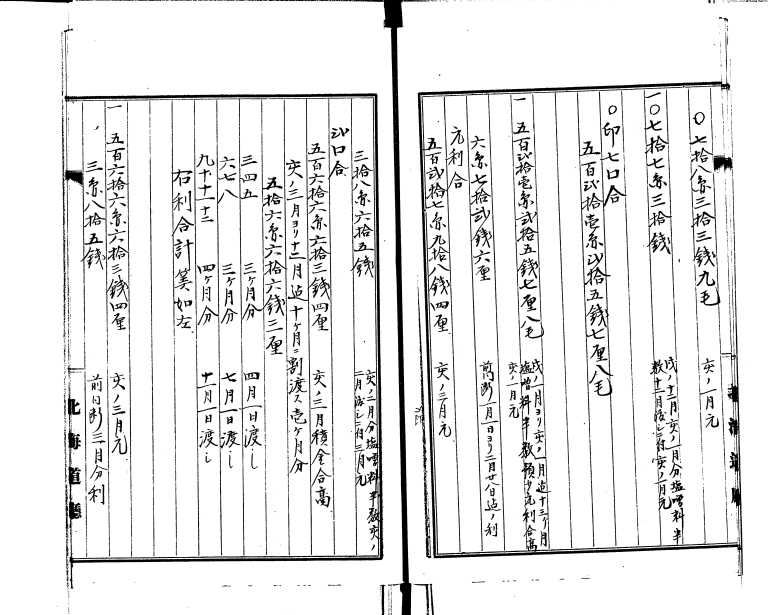 〇七拾八糸三拾三錢九毛 亥ノ一月元
一〇七拾七糸三拾錢 戌ノ十二月亥ノ一月分塩噌料半
数十二月渡シニ付亥ノ一月元
〇印七口合
五百弐拾壱糸弐拾五錢七厘八毛
一 五百弐拾壱糸弐拾五錢七厘八毛 戌ノ一月ヨリ亥ノ一月迠十三ヶ月
塩噌料半数預ケ元利合高
亥ノ一月元
六糸七拾弐錢六厘 前同断二月一日ヨリ二月廿八日迠ノ利
元利合
五百弐拾七糸九拾八錢四厘 亥ノ三月元
三拾八糸六拾五錢 亥ノ二月分塩噌料半数亥ノ
二月渡シニ付三月元
弐口合
五百六拾六糸六拾三錢四厘 亥ノ三月積金合高
亥ノ三月ヨリ十二月迠十ヶ月ニ割渡ス壱ヶ月分
五拾六糸六拾六錢三厘
三四五 三ヶ月分 四月一日渡シ
六七八 三ヶ月分 七月一日渡シ
九十十一十二 四ヶ月分 十一月一日渡シ
右利合計筭如左
一 五百六拾六糸六拾三錢四厘 亥ノ三月元
三糸八拾五錢 前同断三月分利
北海道廳